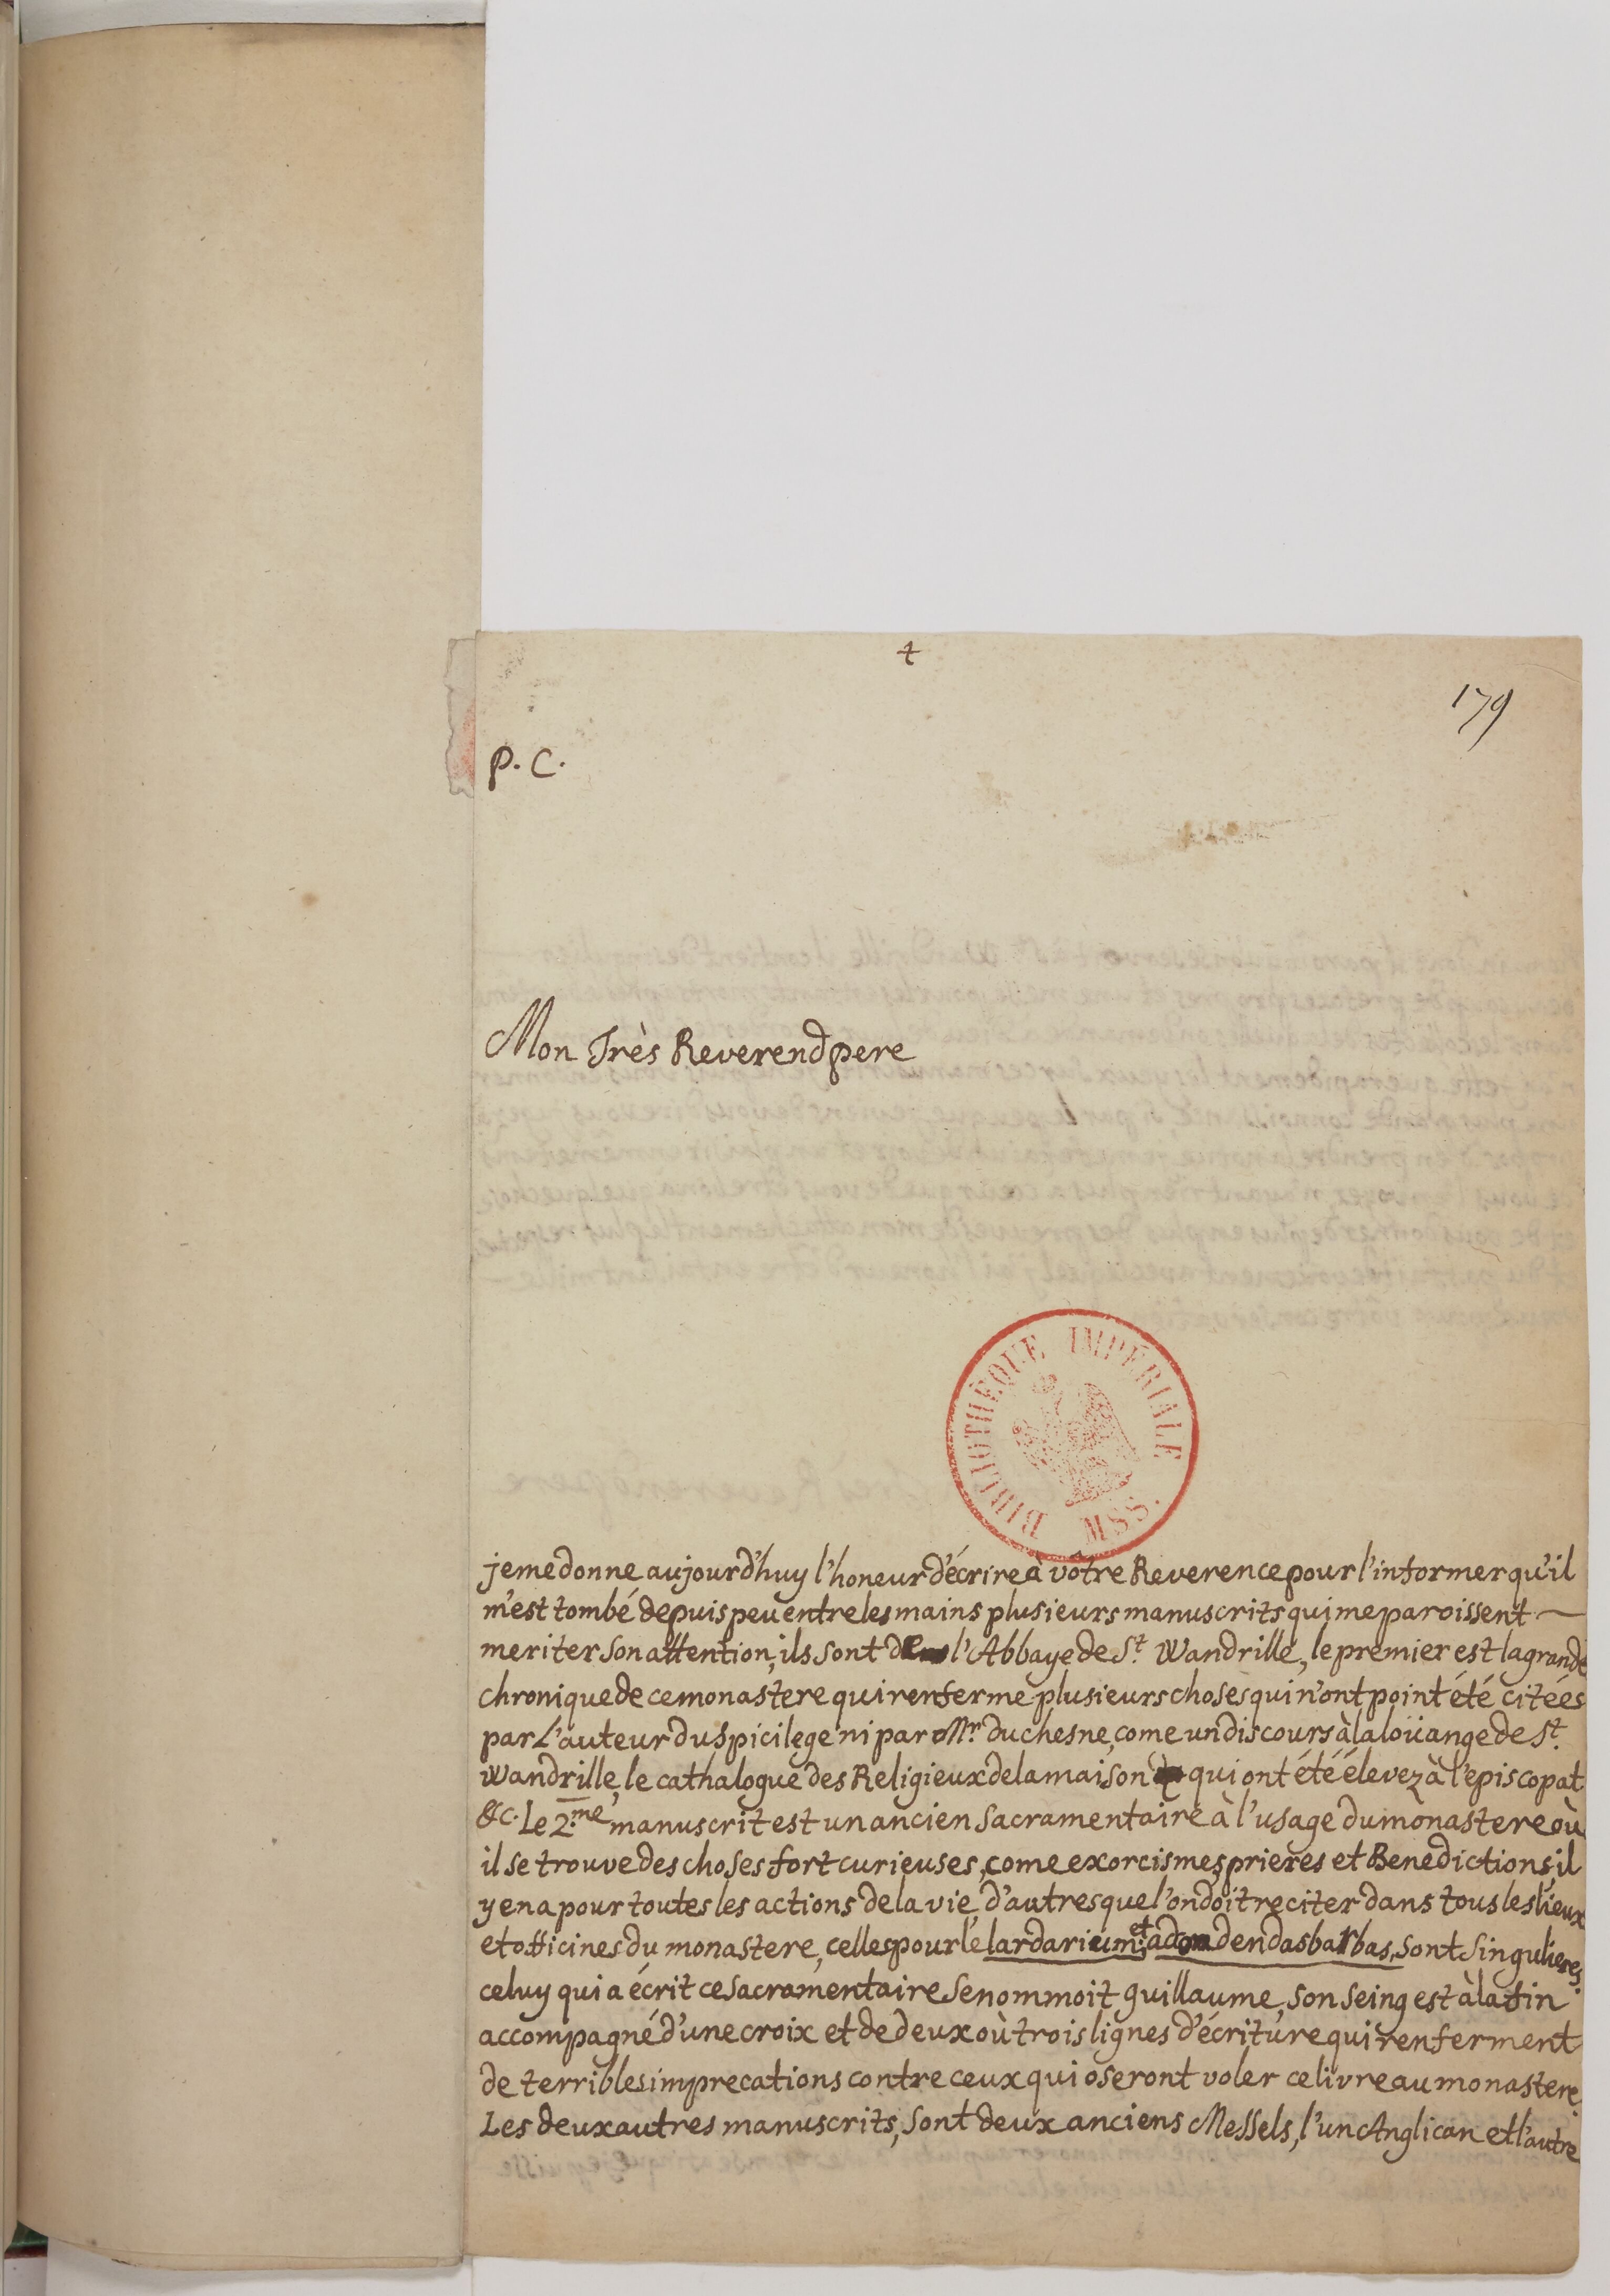 +
179
P. C.
Mon Très Reverend pere
BIBLIOTHÈQUE IMPÉRIALE
MSS.
je me donne aujourd'huy l'honeur d'écrire à vôtre Reverence pour l'informer qu'il
m'est tombé depuis peu entre les mains plusieurs manuscrits qui me paroissent
meriter son attention, ils sont de l'Abbaye de St. Wandrille, le premier est la grande
chronique de ce monastere qui renferme plusieurs choses qui n'ont point été citées
par L'auteur du Spicilege ni par Mr. duchesne, come un discours à la loüange de St.
Wandrille, le cathalogue des Religieux de la maison qui ont été élevez à l'episcopat
&c. Le 2.me manuscrit est un ancien Sacramentaire à l'usage du monastere où
il se trouve des choses fort curieuses, come exorcismes, prieres et Benedictions, il
y en a pour toutes les actions de la vie, d'autres que l'on doit reciter dans tous les lieux
et officines du monastere, celles pour le lardarium, et ad dendas barbas, sont singulieres.
celuy qui a écrit ce sacramentaire se nommoit guillaume, son seing est à la fin
accompagné d'une croix et de deux où trois lignes d'écriture qui renferment
de terribles imprecations contre ceux qui oseront voler ce livre au monastere.
Les deux autres manuscrits, sont deux anciens Messels, l'un Anglican et l'autre